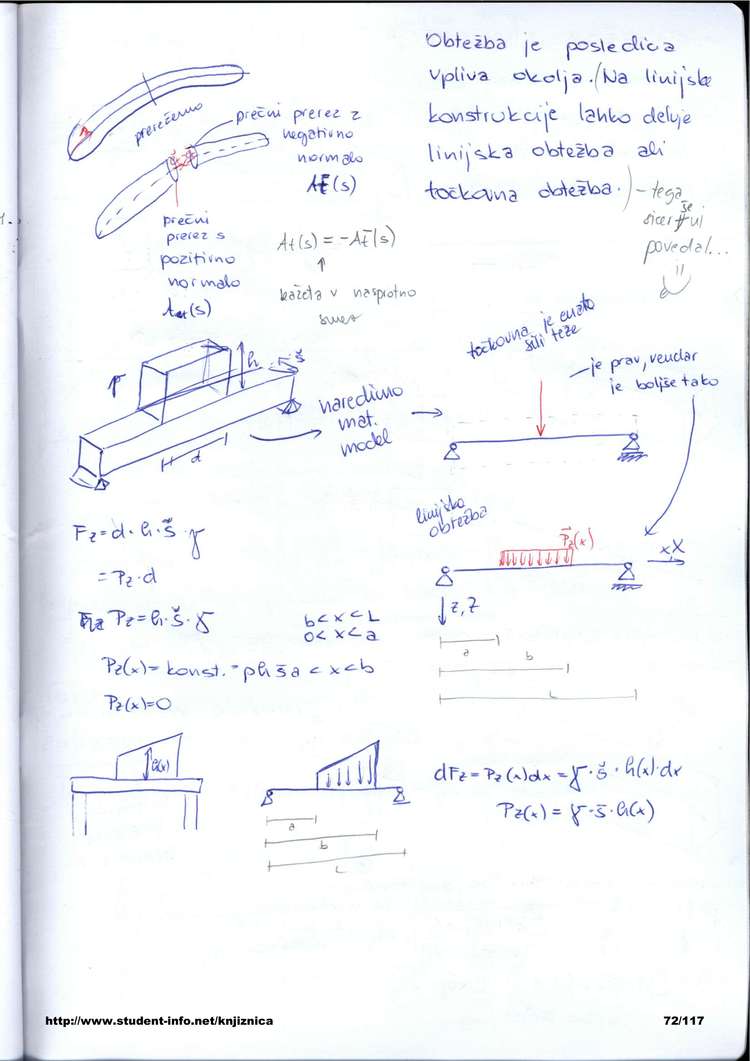 Obtežba je posledica
vpliva okolja. (Na linijske
konstrukcije lahko deluje
linijska obtežba ali
točkovna obtežba.)
- tega
še
povedal...
prerežemo
prečni prerez z
negativno
normalo
prečni
prerez s
pozitivno
normalo
kažeta v nasprotno
smer
h
š
d
naredimo
mat.
model
točkovna je enako
sili teže
je prav, vendar
je boljše tako
Fz = d · h · š · γ
= Pz · d
Pz = h · š · γ
b < x < L
0 < x < a
a < x < b
Pz(x) = konst. =
Pz(x) = 0
linijska
obtežba
P⃗z(x)
x, X
z, Z
a
b
L
h(x)
a
b
L
dFz = Pz(x)dx = γ · š · h(x) · dx
Pz(x) = γ · š · h(x)
http://www.student-info.net/knjiznica
72/117